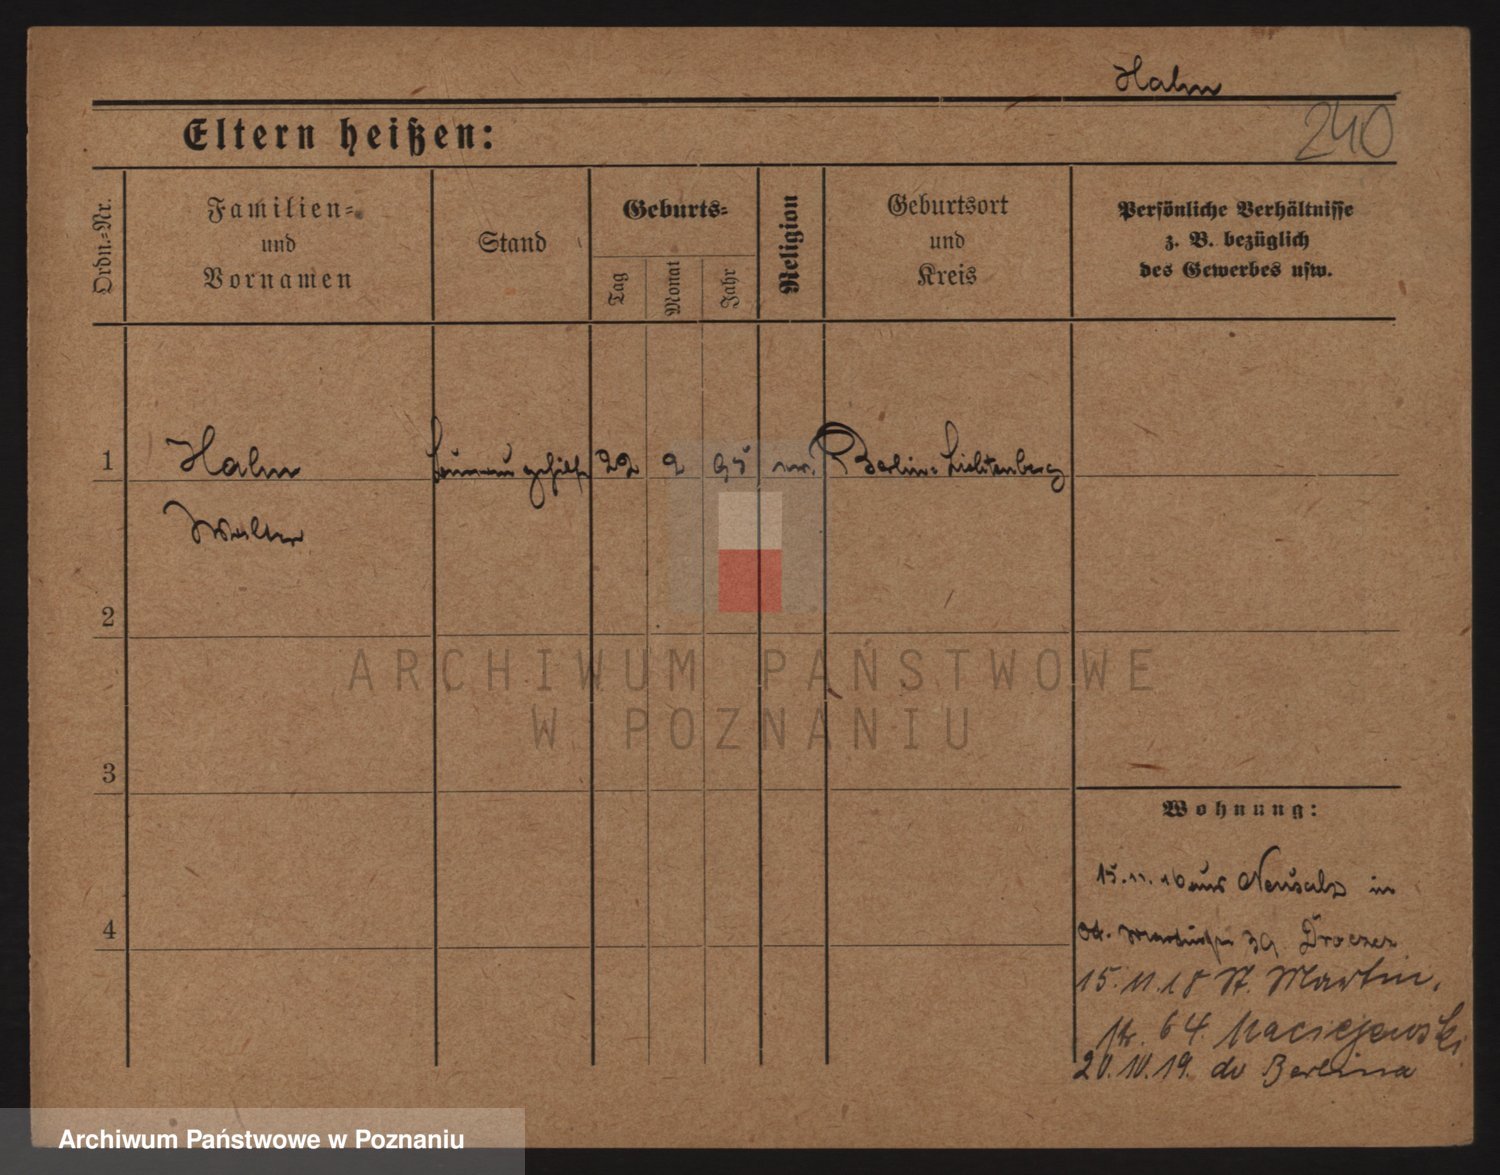 Hahn
240
Eltern heißen:
Ordn.-Nr.
Familien-
und
Vornamen
Stand
Geburts-
Tag
Monat
Jahr
Religion
Geburtsort
und
Kreis
Persönliche Verhältnisse
z. B. bezüglich
des Gewerbes usw.
1
Hahn
22
2
95
Berlin-Lichtenberg
Walter
2
3
4
Wohnung:
15.11.16 aus Neusalz in
39
15.11.18 St. Martin.
Nr. 64. Maciejewski
20.10.19. do Berlina
ARCHIWUM PAŃSTWOWE
W POZNANIU
Archiwum Państwowe w Poznaniu